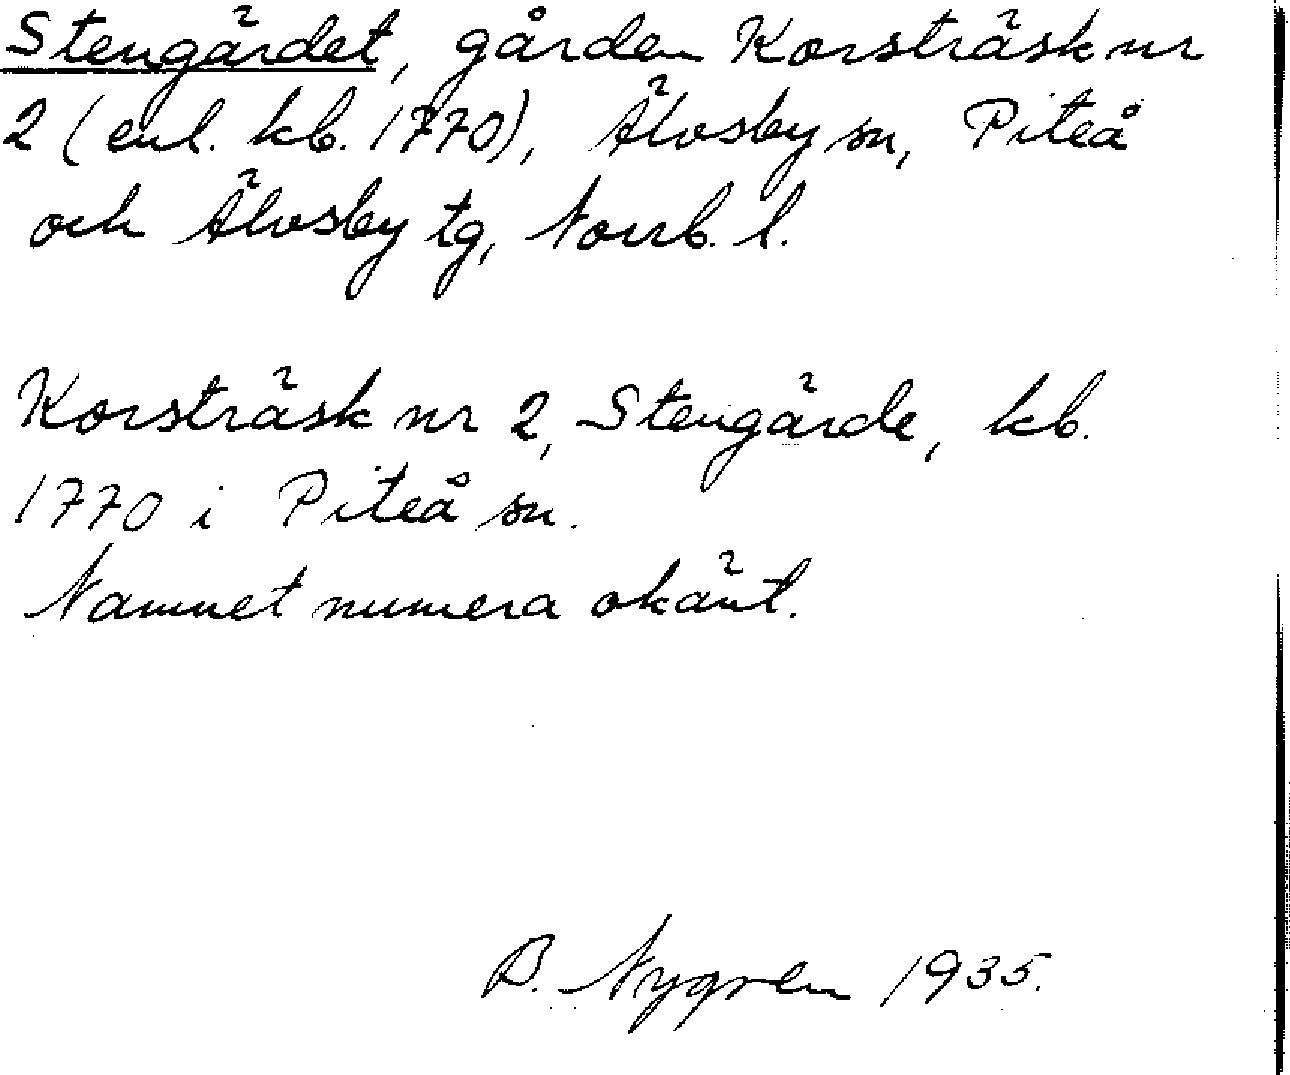 Stengärdet, gården Korsträsk nr
2 (enl. kb. 1770), Älvsby sn, Piteå
och Älvsby tg, Norrb. l.
Korsträsk nr 2, Stengärde, kb.
1770 i Piteå sn.
Namnet numera okänt.
B. Nygren 1935.